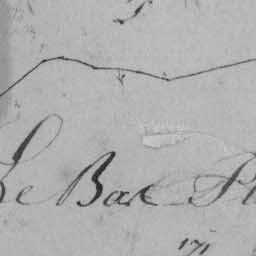 Le Bac Pl
171